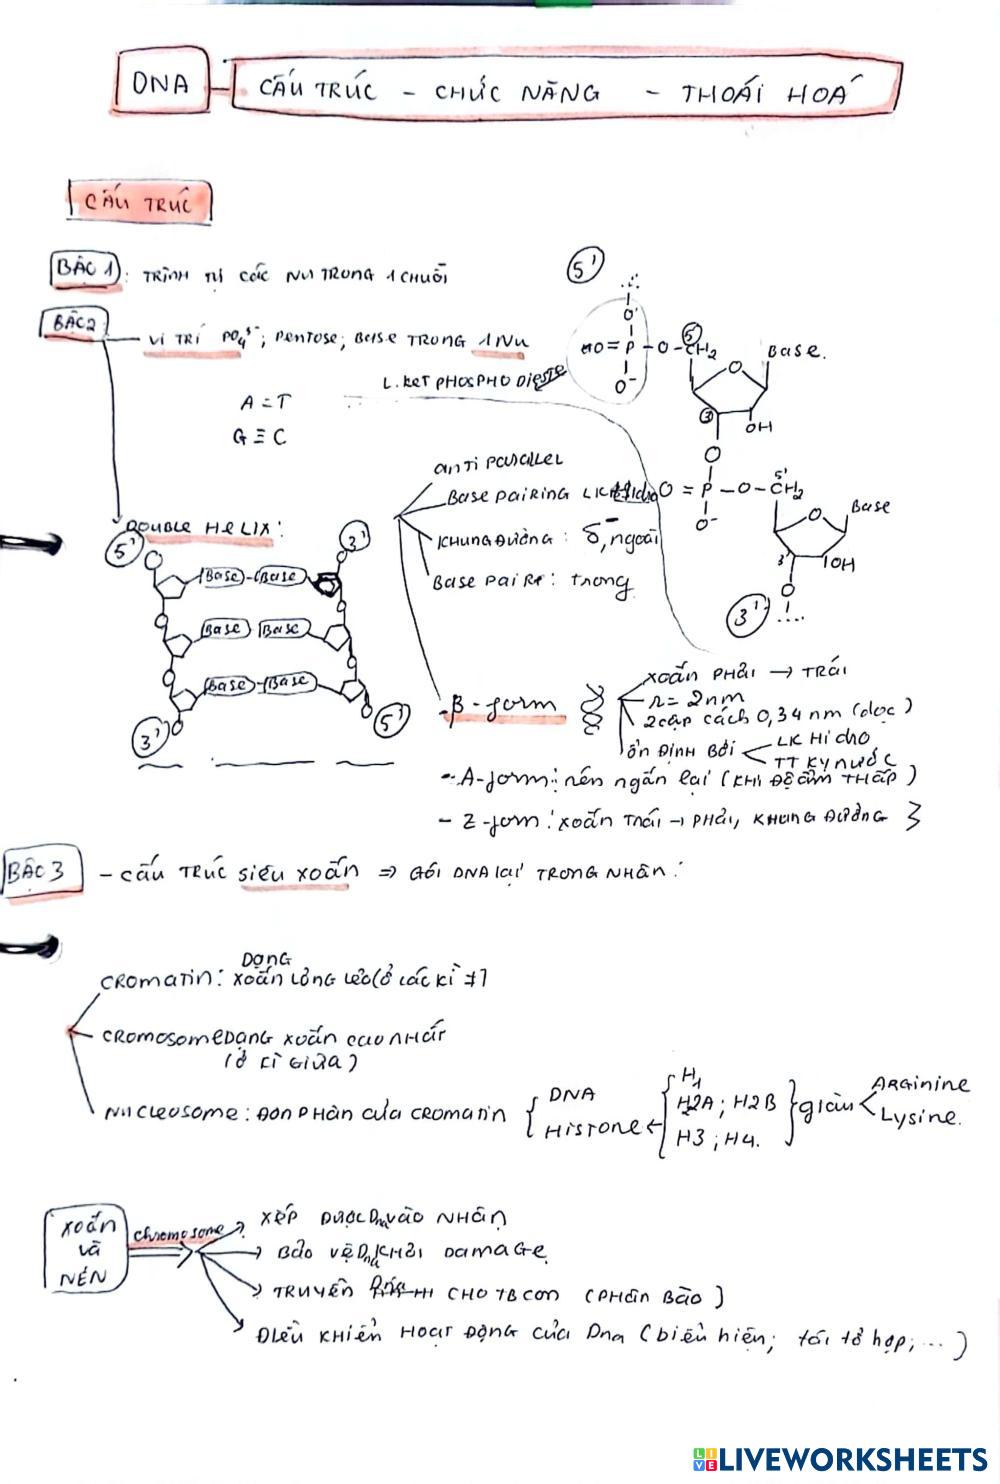 DNA CẤU TRÚC - CHỨC NĂNG - THOÁI HOÁ
CẤU TRÚC
BẬC 1: TRÌNH TỰ CÁC NU TRONG 1 CHUỖI
BẬC 2
VỊ TRÍ PO₄³⁻; PENTOSE; BASE TRONG 1 NU
L.KẾT PHOSPHO DIESTE
A = T
G ≡ C
5'
O
O = P - O - CH₂
5'
O⁻
O
Base.
3'
OH
O
O = P - O - CH₂
5'
O⁻
O
Base
3'
OH
O
3'
DOUBLE HELIX:
5'
3'
Base - Base
Base Base
Base - Base
3'
5'
anti parallel
Base pairing LK
KHUNG ĐƯỜNG: δ⁻, ngoài
Base paire: trong
- β-form
XOẮN PHẢI → TRÁI
r = 2nm
2 cặp cách 0,34 nm (dọc)
ỔN ĐỊNH BỞI
LK Hidro
TT KỴ NƯỚC
- A-form: nén ngắn lại (KHI ĐỘ ẨM THẤP)
- Z-form: XOẮN TRÁI → PHẢI, KHUNG ĐƯỜNG
BẬC 3 - CẤU TRÚC SIÊU XOẮN ⇒ GÓI DNA LẠI TRONG NHÂN:
DẠNG
CROMATIN: XOẮN LỎNG LẺO (Ở CÁC KÌ ≠)
CROMOSOME DẠNG XOẮN CAO NHẤT
(Ở KÌ GIỮA)
NUCLEOSOME: ĐƠN PHÂN CỦA CROMATIN
DNA
HISTONE
H1
H2A; H2B
H3; H4.
giàu
ARGinine
Lysine.
XOẮN
và
NÉN
chromosome
XẾP ĐƯỢC Dna VÀO NHÂN
BẢO VỆ Dna KHỎI DAMAGE
TRUYỀN CHO TB CON (PHÂN BÀO)
ĐIỀU KHIỂN HOẠT ĐỘNG CỦA Dna (biểu hiện; tái tổ hợp; ...)
LIVEWORKSHEETS